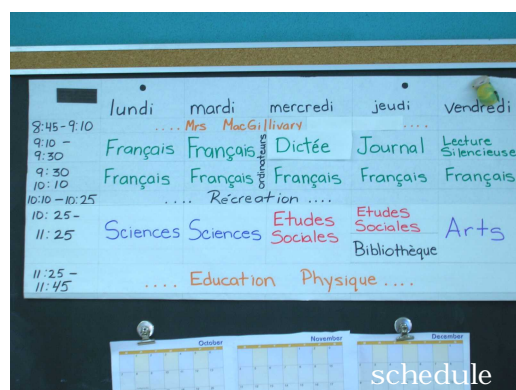 lundi mardi mercredi jeudi vendredi
8:45-9:10 .... Mrs MacGillivary ....
9:10 - 9:30 Français Français ordinateurs Dictée Journal Lecture Silencieuse
9:30 10:10 Français Français Français Français Français
10:10-10:25 .... Récreation ....
10:25- 11:25 Sciences Sciences Etudes Sociales Etudes Sociales Bibliothèque Arts
11:25- 11:45 .... Education Physique ....
October November December
schedule